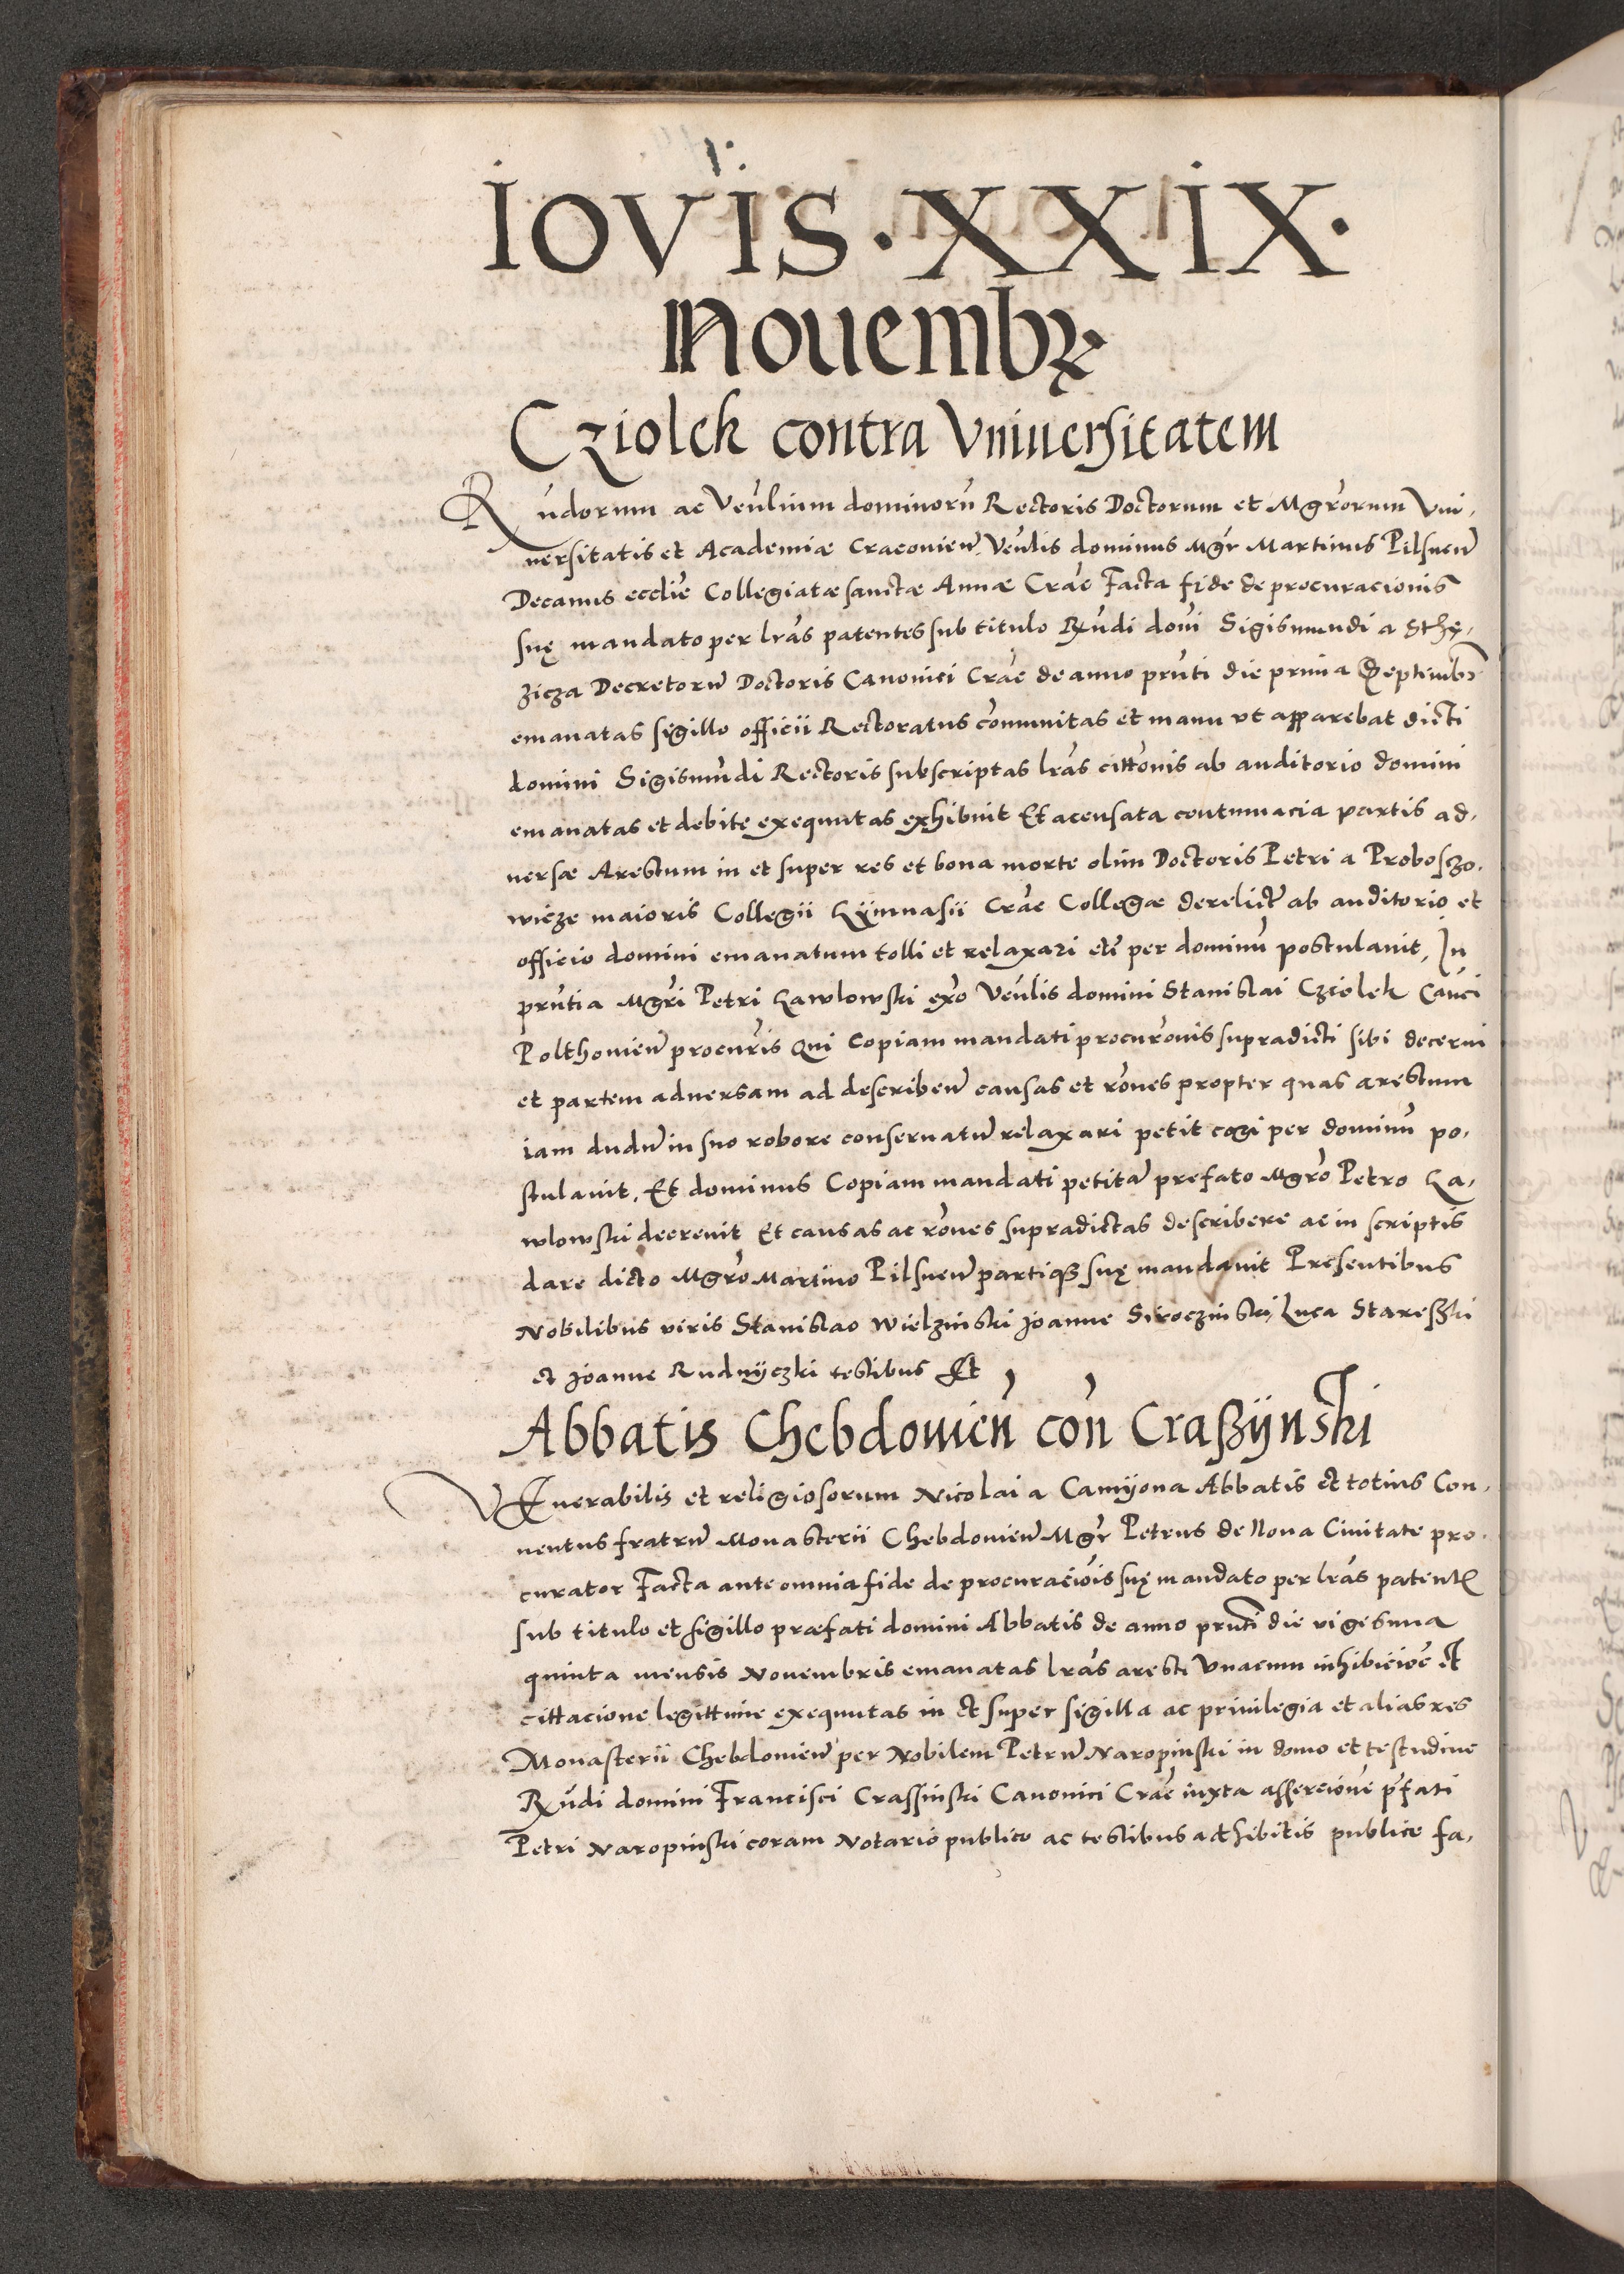 IOVIS · XXIX ·
Nouembꝝ
Cziolek contra Vniuersitatem
Rn̄dorum ac Ven̄lium dominorū Rectoris Doctorum et Mgr̄orum Vni,
uersitatis et Academiæ Cracouien̄ Ven̄lis dominus Mgr̄ Martinus Pilsnen̄
Decanus eccl̄ie Collegiatæ sanctæ Annæ Crac̄ Facta fide de procuracionis
suę mandato per lr̄as patentes sub titulo Rn̄di dn̄i Sigismundi a Sthę,
zicza Decretorū Doctoris Canonici Crac̄ de anno prn̄ti die prima Septembr̄
emanatas sigillo officii Rectoratus cōmunitas et manu vt apparebat dicti
domini Sigismūdi Rectoris subscriptas lr̄as citt̄onis ab auditorio domini
emanatas et debite exequutas exhibuit Et accusata contumacia partis ad,
uersæ Arestum in et super res et bona morte olim Doctoris Petri a Proboszo,
wicze maioris Collegii Gÿmnasii Crac̄ Collegæ derelict̄ ab auditorio et
officio domini emanatum tolli et relaxari etc̄ per dominū postulauit, In
prn̄tia Mgr̄i Petri Gawlowski ex̄o Ven̄lis domini Stanislai Cziolek Can̄ci
Polthouien̄ procur̄is Qui Copiam mandati procur̄onis supradicti sibi decerni
et partem aduersam ad describen̄ causas et rōnes propter quas arestum
iam dudū in suo robore conseruatū relaxari petit cogi per dominū po,
stulauit, Et dominus Copiam mandati petitā prefato Mgr̄o Petro Ga,
wlowski decreuit Et causas ac rōnes supradictas describere ac in scriptis
dare dicto Mgr̄o Martino Pilsnen̄ partiqꝫ suę mandauit Presentibus
Nobilibus viris Stanislao Wielzinski Joanne Siroczinski, Luca Stareßki
et Joanne Rudnÿczki testibus Et
Abbatis Chebdouien̄ con̄ Craßÿnski
VEnerabilis et religiosorum Nicolai a Camÿona Abbatis et totius Con,
uentus fratrū Monasterii Chebdouien̄ Mgr̄ Petrus de Noua Ciuitate pro,
curator Facta ante omnia fide de procurac̄iois suę mandato per lr̄as patent̄
sub titulo et sigillo præfati domini Abbatis de anno prn̄ti die vigesima
quinta mensis Nouembris emanatas lr̄as aresti Vnacum inhibic̄ioe et
cittacione legittime exequutas in et super sigilla ac priuilegia et alias res
Monasterii Chebdouien̄ per Nobilem Petrū Naropinski in domo et testudine
Rn̄di domini Francisci Crassinski Canonici Crac̄ iuxta asserc̄ione p̄fati
Petri Naropinski coram Notario publico ac testibus adhibitis publice fa,